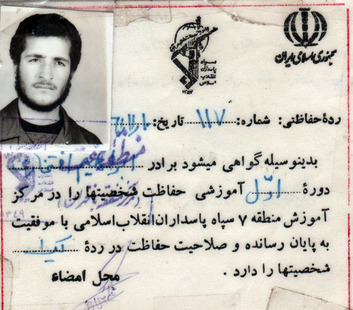 جمهوری اسلامی ایران
سپاه
پاسداران
انقلاب
اسلامی
ردهٔ حفاظتی: شماره: ۱۱۷ تاریخ:
بدینوسیله گواهی میشود برادر
دورهٔ اوّل آموزشی حفاظت شخصیتها را در مرکز
آموزش منطقه ۷ سپاه پاسداران انقلاب اسلامی با موفقیت
به پایان رسانده و صلاحیت حفاظت در ردهٔ
شخصیتها را دارد.
محل امضاء